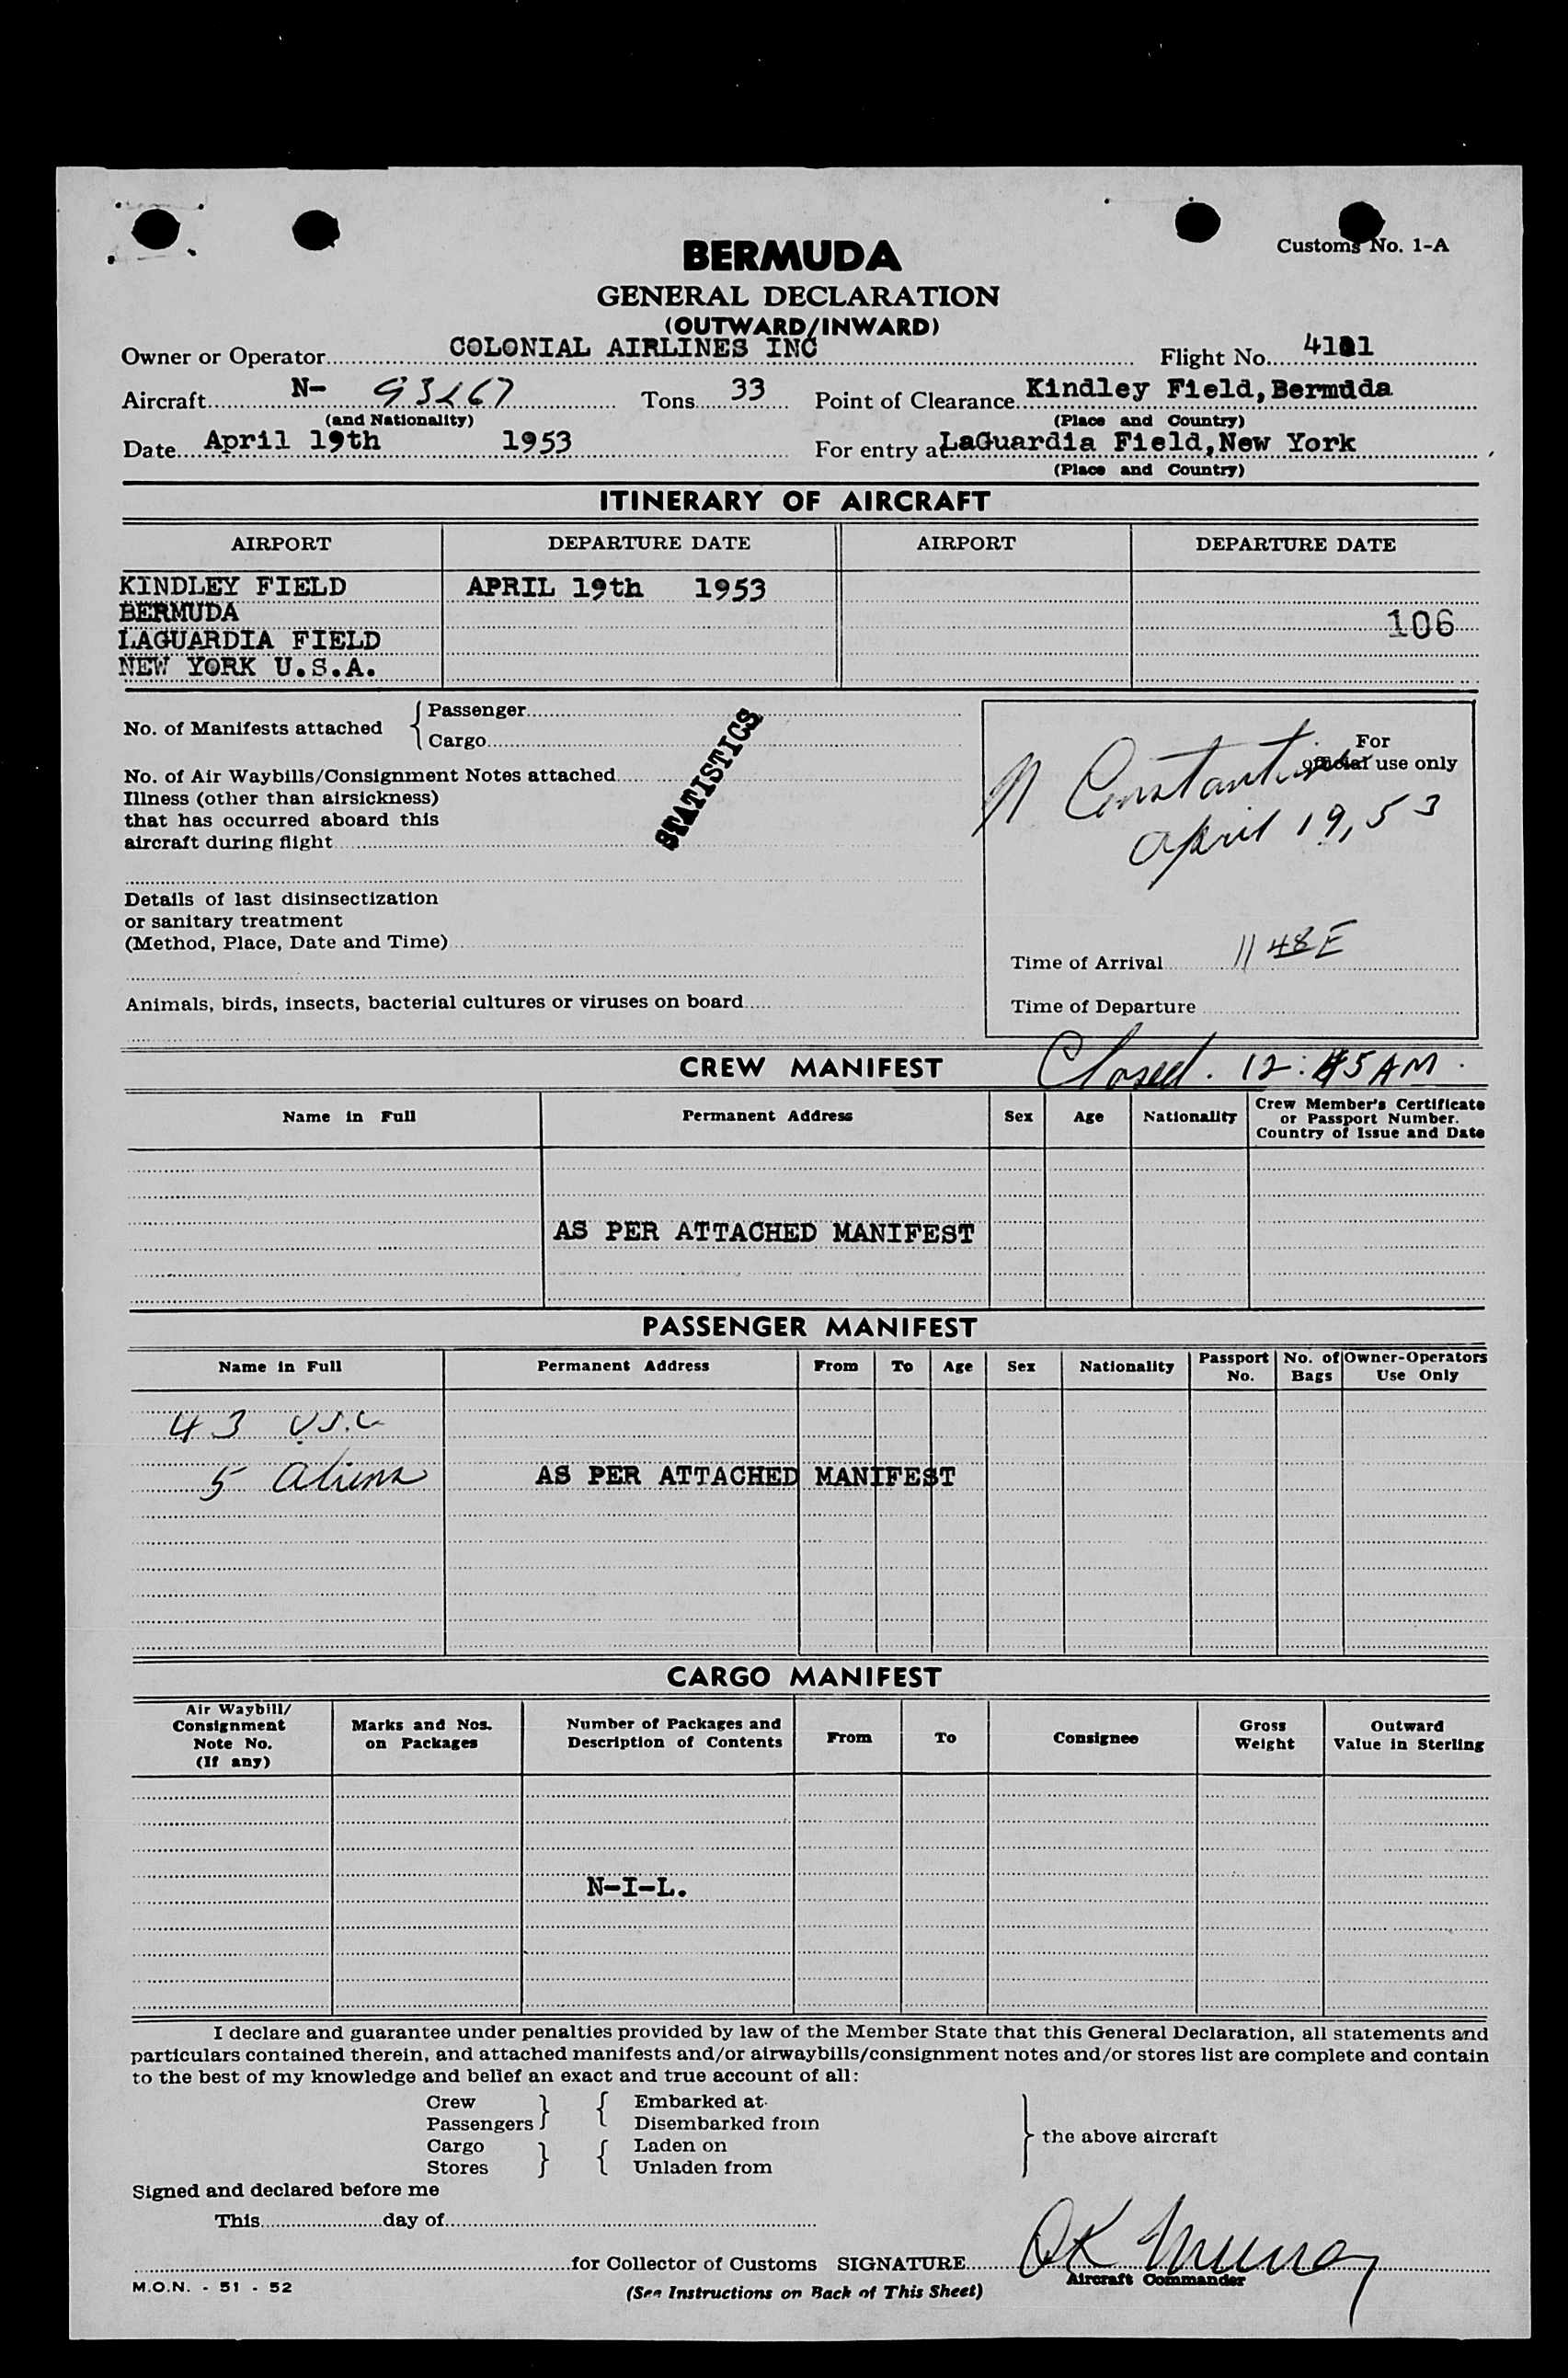 Customs No. 1-A
BERMUDA
GENERAL DECLARATION
(OUTWARD/INWARD)
Owner or Operator COLONIAL AIRLINES INC Flight No.
Aircraft N- Tons 33 Point of Clearance Kindley Field, Bermuda
(and Nationality) (Place and Country)
Date April 19th 1953 For entry at LaGuardia Field, New York
(Place and Country)
ITINERARY OF AIRCRAFT
AIRPORT DEPARTURE DATE AIRPORT DEPARTURE DATE
KINDLEY FIELD APRIL 19th 1953
BERMUDA
106
LAGUARDIA FIELD
NEW YORK U.S.A.
No. of Manifests attached { Passenger
Cargo
STATISTICS
No. of Air Waybills/Consignment Notes attached
Illness (other than airsickness)
that has occurred aboard this
aircraft during flight
Details of last disinsectization
or sanitary treatment
(Method, Place, Date and Time)
Animals, birds, insects, bacterial cultures or viruses on board
For
official use only
April 19, 53
Time of Arrival 11 48 E
Time of Departure
Closed. 12:45 AM.
CREW MANIFEST
Name in Full Permanent Address Sex Age Nationality Crew Member's Certificate
or Passport Number.
Country of Issue and Date
AS PER ATTACHED MANIFEST
PASSENGER MANIFEST
Name in Full Permanent Address From To Age Sex Nationality Passport No. No. of Bags Owner-Operators Use Only
43 U.S.C
5 Aliens AS PER ATTACHED MANIFEST
CARGO MANIFEST
Air Waybill/
Consignment
Note No.
(If any)
Marks and Nos.
on Packages
Number of Packages and
Description of Contents
From To Consignee
Gross
Weight
Outward
Value in Sterling
N-I-L.
I declare and guarantee under penalties provided by law of the Member State that this General Declaration, all statements and
particulars contained therein, and attached manifests and/or airwaybills/consignment notes and/or stores list are complete and contain
to the best of my knowledge and belief an exact and true account of all:
Crew } { Embarked at
Passengers } { Disembarked from
Cargo } { Laden on } the above aircraft
Stores } { Unladen from
Signed and declared before me
This day of
for Collector of Customs SIGNATURE
Aircraft Commander
M.O.N. - 51 - 52
(See Instructions on Back of This Sheet)